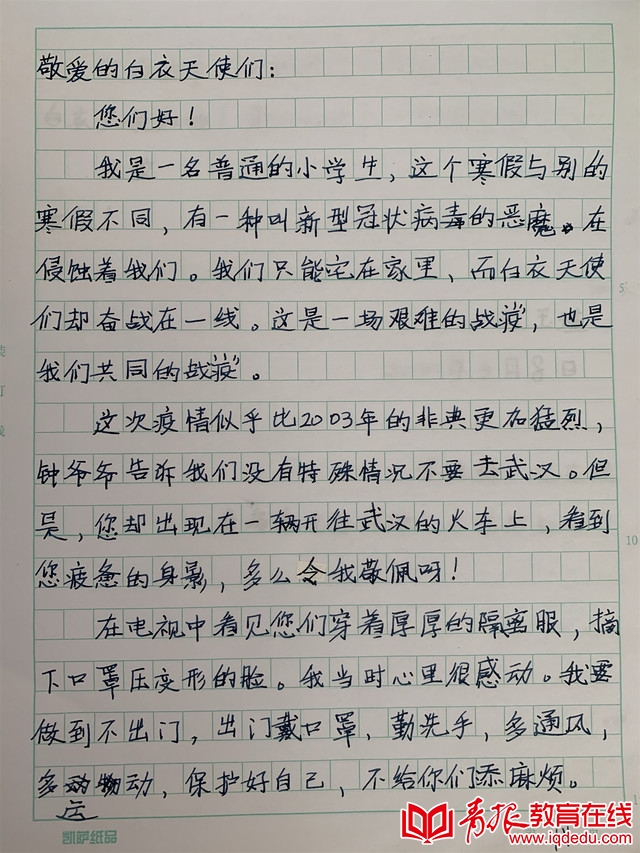 敬爱的白衣天使们：
您们好！
我是一名普通的小学生，这个寒假与别的
寒假不同，有一种叫新型冠状病毒的恶魔。在
侵蚀着我们。我们只能宅在家里，而白衣天使
们却奋战在一线。这是一场艰难的战“疫”，也是
我们共同的战“疫”。
这次疫情似乎比2003年的非典更加猛烈，
钟爷爷告诉我们没有特殊情况不要去武汉。但
是，您却出现在一辆开往武汉的火车上，看到
您疲惫的身影，多么令我敬佩呀！
在电视中看见您们穿着厚厚的隔离服，摘
下口罩压变形的脸。我当时心里很感动。我要
做到不出门，出门戴口罩，勤洗手，多通风，
多运动，保护好自己，不给你们添麻烦。
凯萨纸品
青报教育在线
www.iqdedu.com
5
10